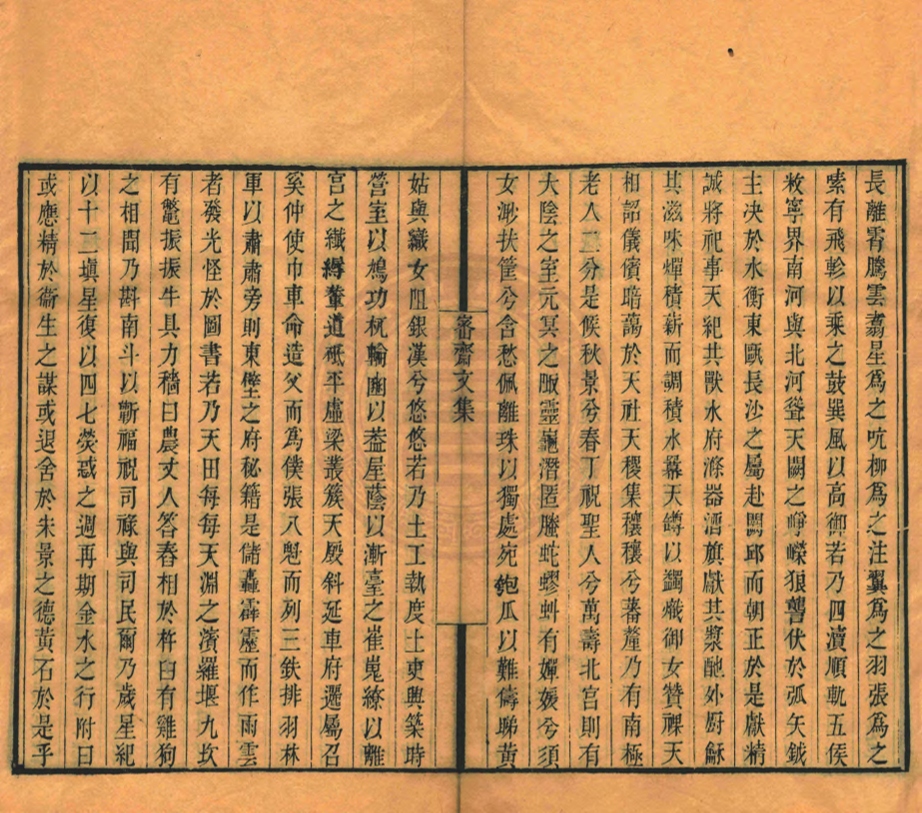 長離霄騰雲翥星爲之吭柳爲之注翼爲之羽張爲之
嗉有飛軫以乘之鼓巽風以高御若乃四瀆順軌五侯
敉寧界南河與北河聳天闕之崢嶸狼讋伏於弧矢鉞
主决於水衡東甌長沙之屬赴闕邱而朝正於是獻精
誠將祀事天紀共獸水府滌器酒旗獻其漿酏外厨龢
其滋味燀積薪而調積水冪天罇以蠲爟御女贊祼天
相詔儀儐暗藹於天社天稷集穰穰兮蕃釐乃有南極
老人二分是候秋景兮春丁祝聖人兮萬壽北宮則有
大陰之室元冥之版靈龜潛匿螣蛇蟉蚪有嬋媛兮須
女渺扶筐兮含愁佩離珠以獨處宛匏瓜以難儔睇黃
審齋文集
姑與織女阻銀漢兮悠悠若乃土工執度土吏興築時
營室以鳩功杭輪囷以葢屋蔭以漸臺之崔嵬繚以離
宫之纖縟輦道砥平虛梁叢簇天廏斜延車府邐屬召
奚仲使巾車命造父而爲僕張八魁而列三鈇排羽林
軍以肅肅旁則東壁之府秘籍是儲轟霹靂而作雨雲
者發光怪於圖書若乃天田每每天淵之濱羅堰九坎
有鼈振振牛具力穡曰農丈人答舂相於杵臼有雞狗
之相聞乃斟南斗以斳福祝司祿與司民爾乃歲星紀
以十二塡星復以四七熒惑之週再期金水之行附日
或應精於衛生之謀或退舍於朱景之德黃石於是乎